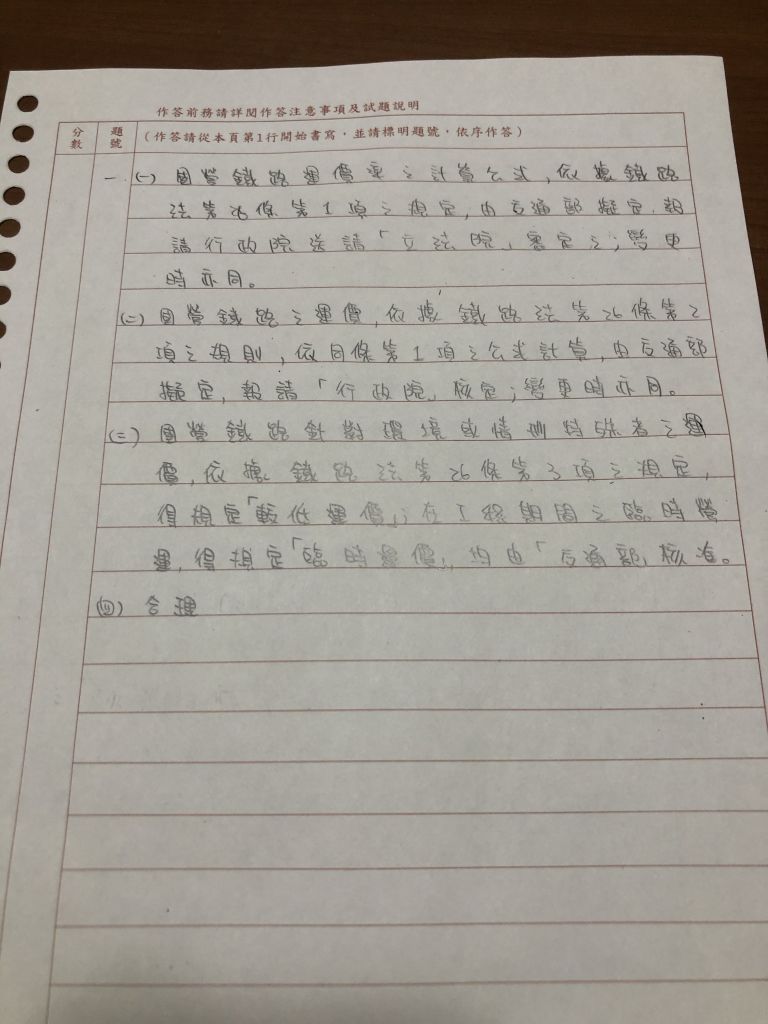 作答前務請詳閱作答注意事項及試題說明
分數 題號 (作答請從本頁第1行開始書寫,並請標明題號,依序作答)
一 (一) 國營鐵路運價率之計算公式,依據鐵路
法第26條第1項之規定,由交通部擬定,報
請行政院送請「立法院」審定之;變更
時亦同。
(二) 國營鐵路之運價,依據鐵路法第26條第2
項之規則,依同條第1項之公式計算,由交通部
擬定,報請「行政院」核定;變更時亦同。
(三) 國營鐵路針對環境或情形特殊者之運
價,依據鐵路法第26條第3項之規定,
得規定「較低運價」;在工程期間之臨時營
運,得規定「臨時運價」,均由「交通部」核准。
(四) 合理